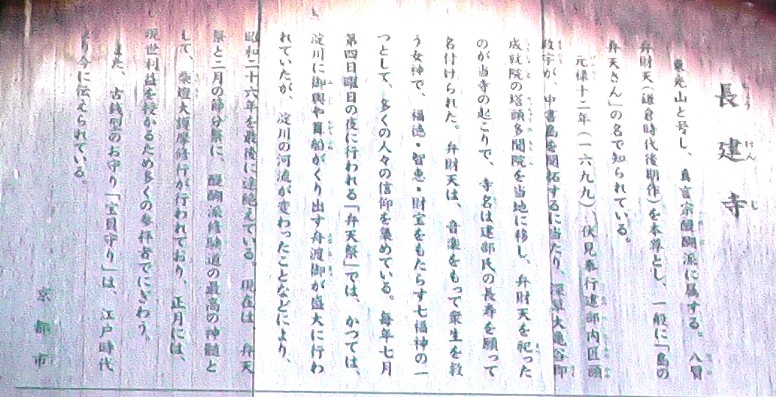 長建寺
ちょう けん じ
東光山と号し、真言宗醍醐派に属する。八臂
弁財天(鎌倉時代後期作)を本尊とし、一般に「島の
弁天さん」の名で知られている。
元禄十二年(一六九九)、伏見奉行建部内匠頭
政宇が、中書島を開拓するに当たり、深草大亀谷即
成就院の塔頭多聞院を当地に移し、弁財天を祀った
のが当寺の起こりで、寺名は建部氏の長寿を願って
名付けられた。弁財天は、音楽をもって衆生を救
う女神で、福徳・智恵・財宝をもたらす七福神の一
つとして、多くの人々の信仰を集めている。毎年七月
第四日曜日の夜に行われる「弁天祭」では、かつては、
淀川に御輿や篝船がくり出す舟渡御が盛大に行わ
れていたが、淀川の河流が変わったことなどにより、
昭和二十六年を最後に途絶えている。現在は、弁天
祭と二月の節分祭に、醍醐派修験道の最高の神髄と
して、柴燈大護摩修行が行われており、正月には、
現世利益を授かるため多くの参拝者でにぎわう。
また、古銭型のお守り「宝貝守り」は、江戸時代
より今に伝えられている。
京都市